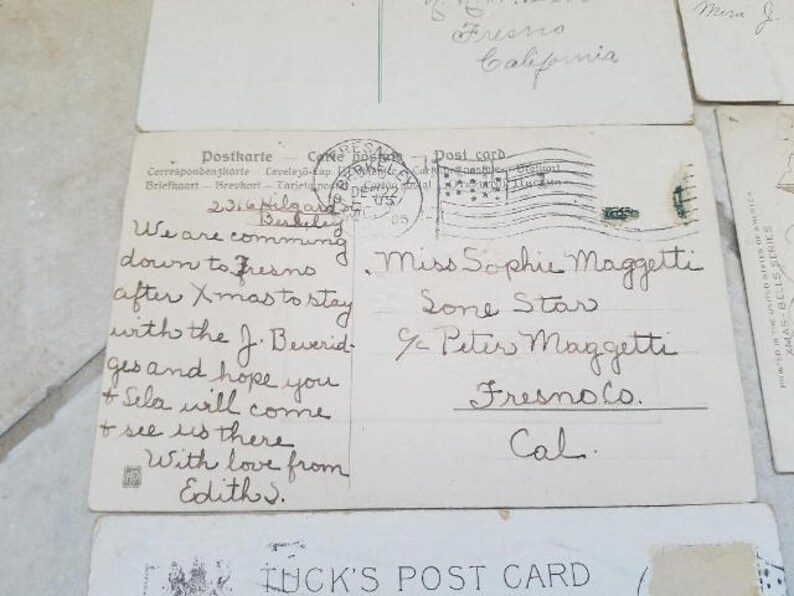 Fresno
California
Mira J.
Postkarte — Carte postale — Post card
Correspondenzkarte Levelező-Lap
Briefkaart — Brevkort — Tarjeta postal
FRESNO
BERKELEY
DEC 22
05
2316 Hilgard
Berkeley
We are comming
down to Fresno
after Xmas to stay
with the J. Beverid-
ges and hope you
+ Sela will come
+ see us there
With love from
Edith S.
Miss Sophie Maggetti
Lone Star
c/o Peter Maggetti
Fresno Co.
Cal.
PRINTED IN THE UNITED STATES OF AMERICA
XMAS-BELLS SERIES
TUCK'S POST CARD